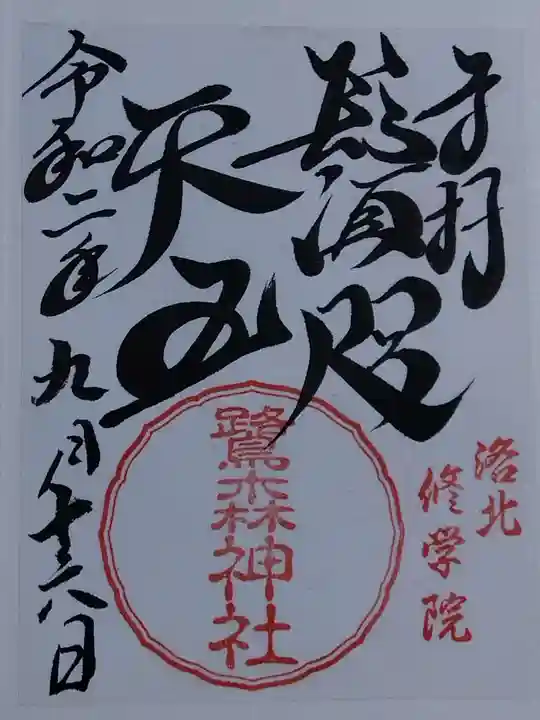 奉拝
鬚咫
天王
令和二年九月十六日
洛北
修学院
鷺森神社